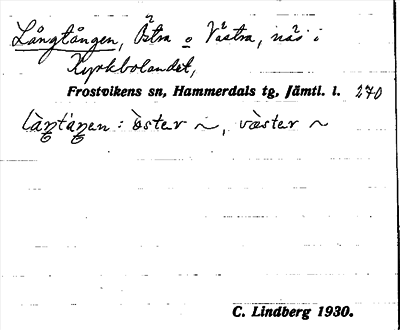 Långtången, Östra o Västra, näs i
Kyrkbolandet,
Frostvikens sn, Hammerdals tg, Jämtl. l. 270
làŋtáŋen : òster ~, vàster ~
C. Lindberg 1930.